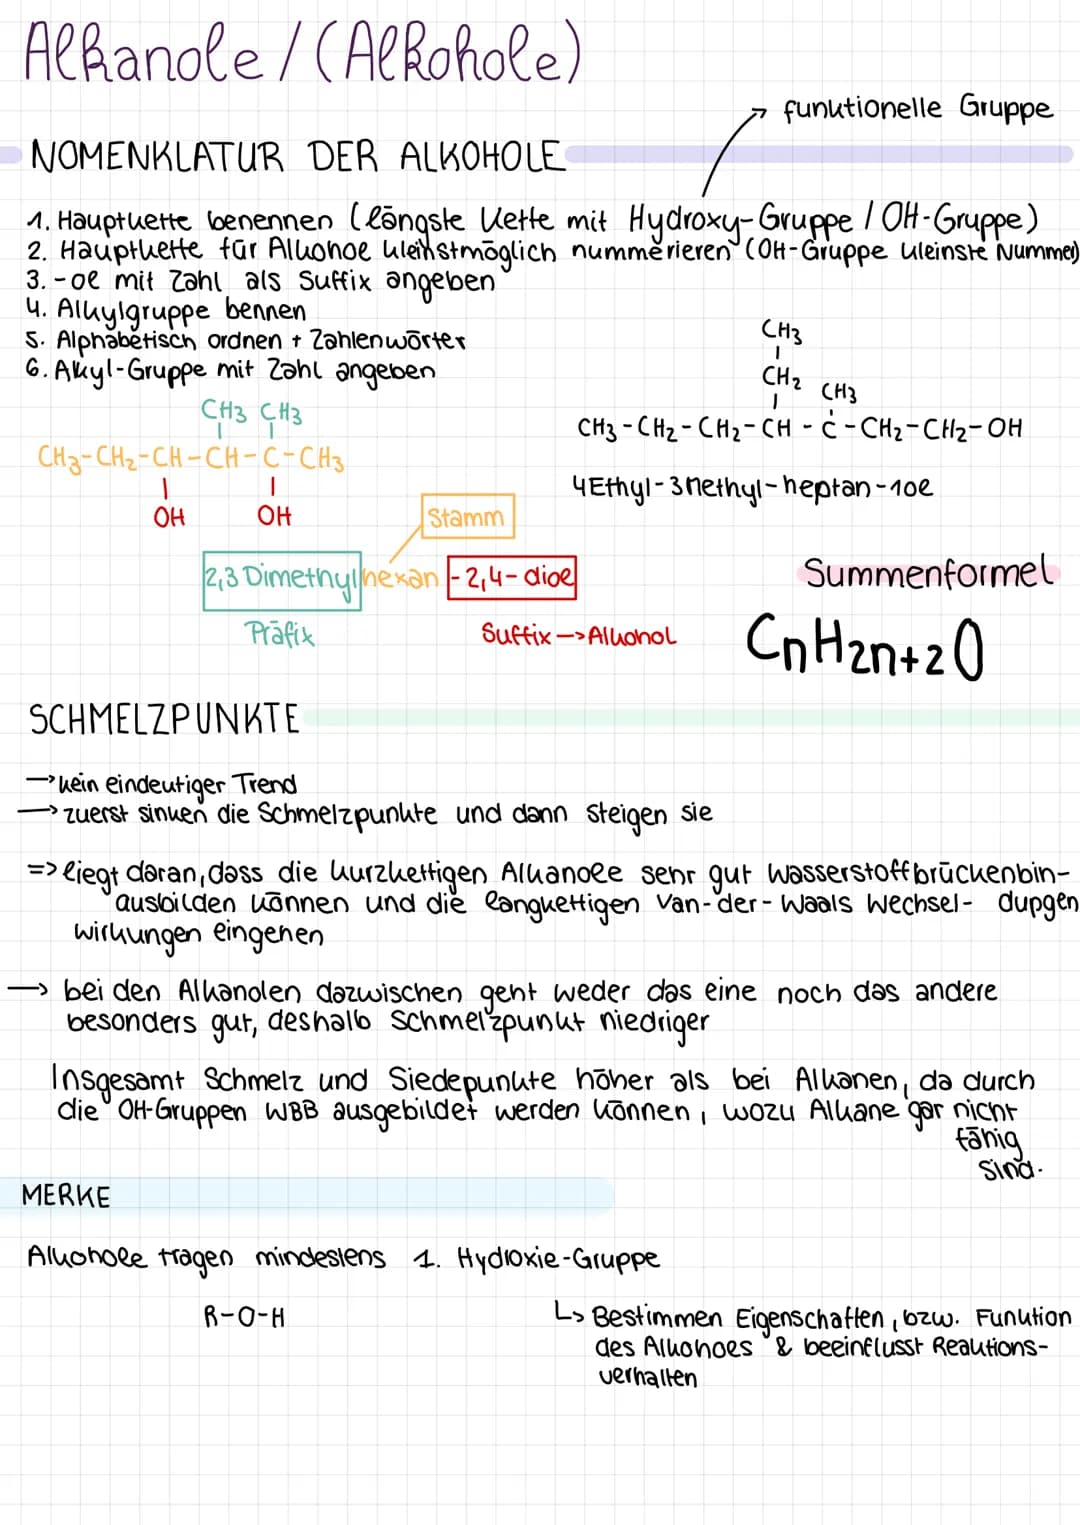 Alkanole / (Alkohole)
funktionelle Gruppe
NOMENKLATUR DER ALKOHOLE
1. Hauptkette benennen (längste Kette mit Hydroxy-Gruppe / OH-Gruppe)
2. Hauptkette für Alkohole kleinstmöglich nummerieren (OH-Gruppe kleinste Nummer)
3. -ol mit Zahl als Suffix angeben
4. Alkylgruppe bennen
5. Alphabetisch ordnen + Zahlenwörter
6. Alkyl-Gruppe mit Zahl angeben
CH3
CH2 CH3
CH3 - CH2 - CH2 - CH - C - CH2 - CH2 - OH
4Ethyl-3Methyl-heptan-1ol
CH3 CH3
CH3-CH2-CH-CH-C-CH3
OH OH
Stamm
2,3 Dimethyl hexan - 2,4-diol
Präfix
Suffix -> Alkohol
Summenformel
CnH2n+2O
SCHMELZPUNKTE
→ kein eindeutiger Trend
→ zuerst sinken die Schmelzpunkte und dann steigen sie
=> liegt daran, dass die kurzkettigen Alkanole sehr gut Wasserstoffbrückenbin-
ausbilden können und die langkettigen Van-der-Waals Wechsel- dungen
wirkungen eingehen
→ bei den Alkanolen dazwischen geht weder das eine noch das andere
besonders gut, deshalb Schmelzpunkt niedriger
Insgesamt Schmelz und Siedepunkte höher als bei Alkanen, da durch
die OH-Gruppen WBB ausgebildet werden können, wozu Alkane gar nicht
fähig
sind.
MERKE
Alkohole tragen mindestens 1. Hydroxie-Gruppe
R-O-H
↳ Bestimmen Eigenschaften, bzw. Funktion
des Alkohols & beeinflusst Reaktions-
verhalten